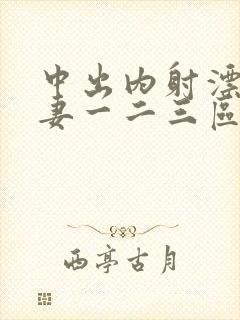 中出内射漂
妻一二三區
西亭古月